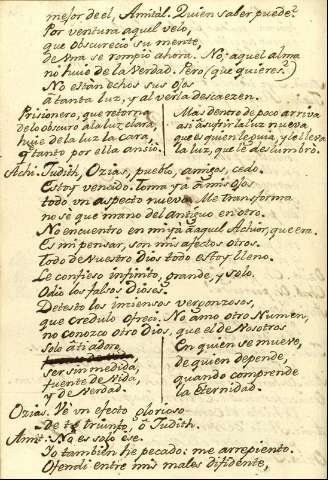 mejor de el, Amital. Quien saber puede?
Por ventura aquel velo,
que obscureció su mente,
de vna se rompió ahora. No; aquel alma
no huió de la Verdad. Pero (que quieres?)
No están echos sus ojos
á tanta luz, y al verla descaezen.
Prisionero, que retorna
de lo obscuro á la luz clara,
huie de la luz la cara,
q tanto por ella ansió.
Mas dentro de poco arriva
asi á sufrir la luz nueva,
que es quien le guia, y le lleva
la luz, que le deslumbró.
Achi. Judith, Ozias, pueblo, amigos, cedo.
Estoy vencido: toma ya á mis ojos
todo vn aspecto nuevo. Me transforma
no se que mano del antiguo en otro.
No encuentro en mi ya á aquel Achior, que era.
Es mi pensar, son mis afectos otros.
Todo de Nuestro Dios todo estoy lleno.
Le confieso infinito, grande, y solo.
Odio los falsos Dioses.
Detesto los inciensos vergonzosos,
que credulo ofreci. No amo otro Numen,
no conozco otro Dios, que el de Vosotros
Solo á ti adoro,
ser sin medida,
fuente de Vida,
y de Verdad.
En quien se mueve,
de quien depende,
quando comprende
la Eternidad.
Ozias. Ve vn efecto glorioso
De tu triunfo, ó Judith.
Amit. No es solo ese.
Io tambien he pecado: me arrepiento.
Ofendi entre mis males difidente,